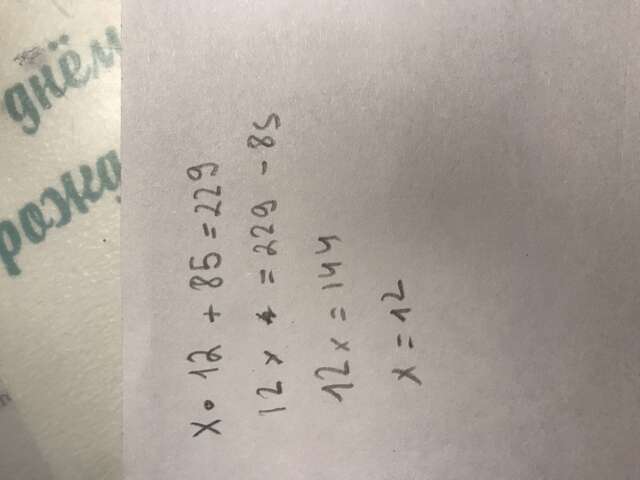 рож
днём
x • 12 + 85 = 229
12x = 229 - 85
12x = 144
x = 12